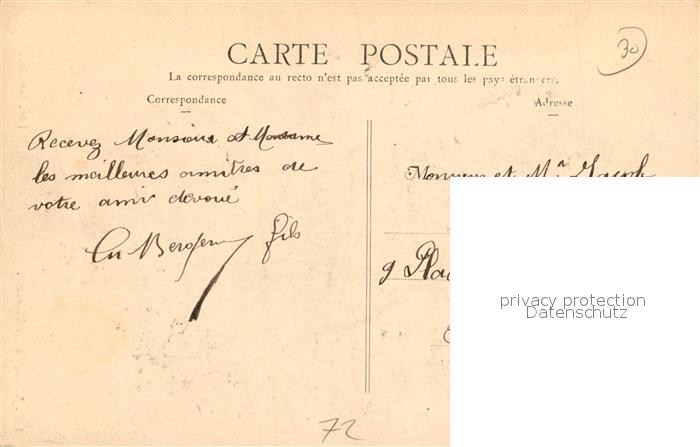 30
CARTE POSTALE
La correspondance au recto n'est pas acceptée par tous les pays étrangers.
Correspondance
Adresse
Recevez Monsieur et Madame
les meilleures amitiés de
votre ami dévoué
fils
Monsieur et Mme Jacob
9 Plac
privacy protection
Datenschutz
72